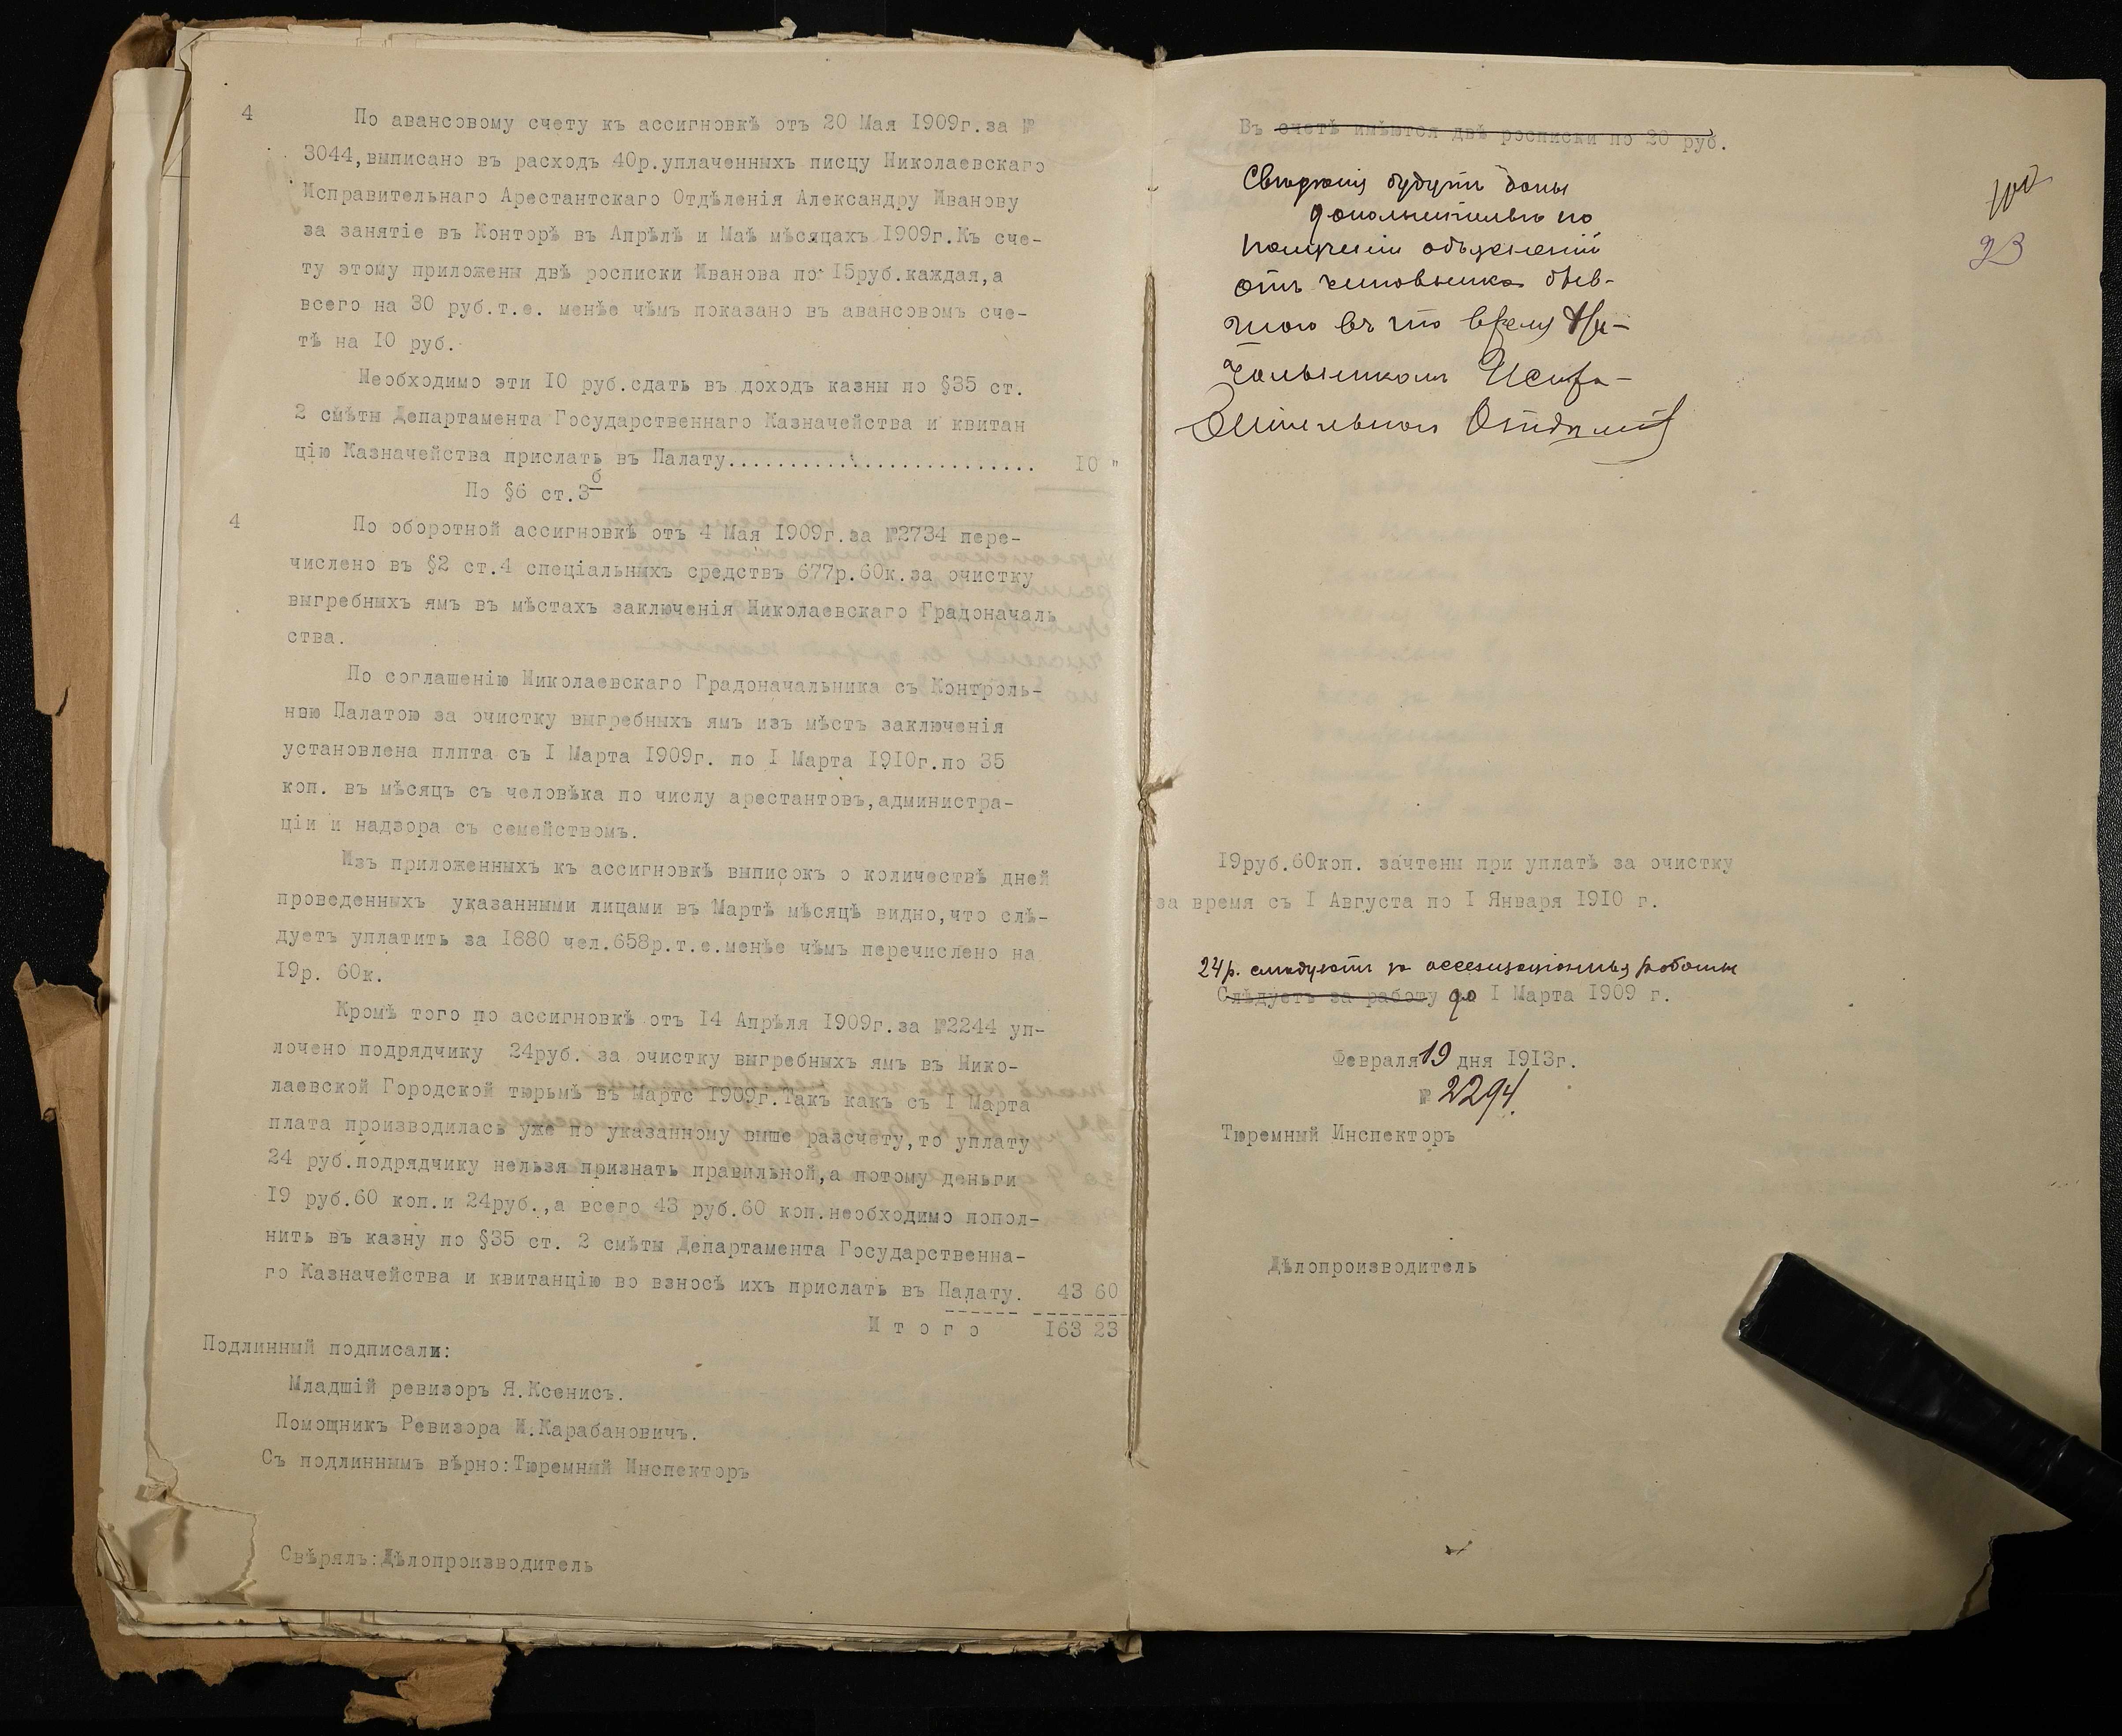 4
По авансовому счету къ ассигновкѣ отъ 20 Мая I909г.за №
3044,выписано въ расходъ 40р.уплаченныхъ писцу Николаевскаго
Исправительнаго Арестантскаго Отдѣленія Александру Иванову
за занятіе въ Конторѣ въ Апрѣлѣ и Маѣ мѣсяцахъ I909г.Къ сче-
ту этому приложены двѣ росписки Иванова по I5руб.каждая,а
всего на 30 руб.т.е. менѣе чѣмъ показано въ авансовомъ сче-
тѣ на I0 руб.
Необходимо эти I0 руб.сдать въ доходъ казны по §35 ст.
2 смѣты Департамента Государственнаго Казначейства и квитан
цію Казначейства прислать въ Палату.......................... I0 "
По §6 ст.3б
4
По оборотной ассигновкѣ отъ 4 Мая I909г.за №2734 пере-
числено въ §2 ст.4 спеціальныхъ средствъ 677р.60к.за очистку
выгребныхъ ямъ въ мѣстахъ заключенія Николаевскаго Градоначаль
ства.
По соглашенію Николаевскаго Градоначальника съ Контроль-
ною Палатою за очистку выгребныхъ ямъ изъ мѣстъ заключенія
установлена плпта съ I Марта I909г. по I Марта I9I0г.по 35
коп. въ мѣсяцъ съ человѣка по числу арестантовъ,администра-
ціи и надзора съ семействомъ.
Изъ приложенныхъ къ ассигновкѣ выписокъ о количествѣ дней
проведенныхъ указанными лицами въ Мартѣ мѣсяцѣ видно,что слѣ-
дуетъ уплатить за I880 чел.658р.т.е.менѣе чѣмъ перечислено на
I9р. 60к.
Кромѣ того по ассигновкѣ отъ I4 Апрѣля I909г.за №2244 уп-
лочено подрядчику 24руб. за очистку выгребныхъ ямъ въ Нико-
лаевской Городской тюрьмѣ въ Мартѣ I909г.Такъ какъ съ I Марта
плата производилась уже по указанному выше разсчету,то уплату
24 руб.подрядчику нельзя признать правильной,а потому деньги
I9 руб.60 коп.и 24руб.,а всего 43 руб.60 коп.необходимо попол-
нить въ казну по §35 ст. 2 смѣты Департамента Государственна-
го Казначейства и квитанцію во взносѣ ихъ прислать въ Палату. 43 60
И т о г о I63 23
Подлинный подписали:
Младшій ревизоръ Я.Ксенисъ.
Помощникъ Ревизора И.Карабановичъ.
Съ подлиннымъ вѣрно:Тюремный Инспекторъ
Свѣрялъ:Дѣлопроизводитель
Въ счетѣ имѣются двѣ росписки по 20 руб.
Свѣдѣнія будутъ даны
дополнительно по
полученіи объясненій
отъ чиновника быв-
шаго въ то время На-
чальникомъ Испра-
вительнаго Отдѣленія
93
I9руб.60коп. зачтены при уплатѣ за очистку
за время съ I Августа по I Января I9I0 г.
24р. слѣдуютъ за ассенизаціонныя работы
Слѣдуетъ за работу до I Марта I909 г.
Февраля 19 дня I9I3г.
№ 2294.
Тюремный Инспекторъ
Дѣлопроизводитель